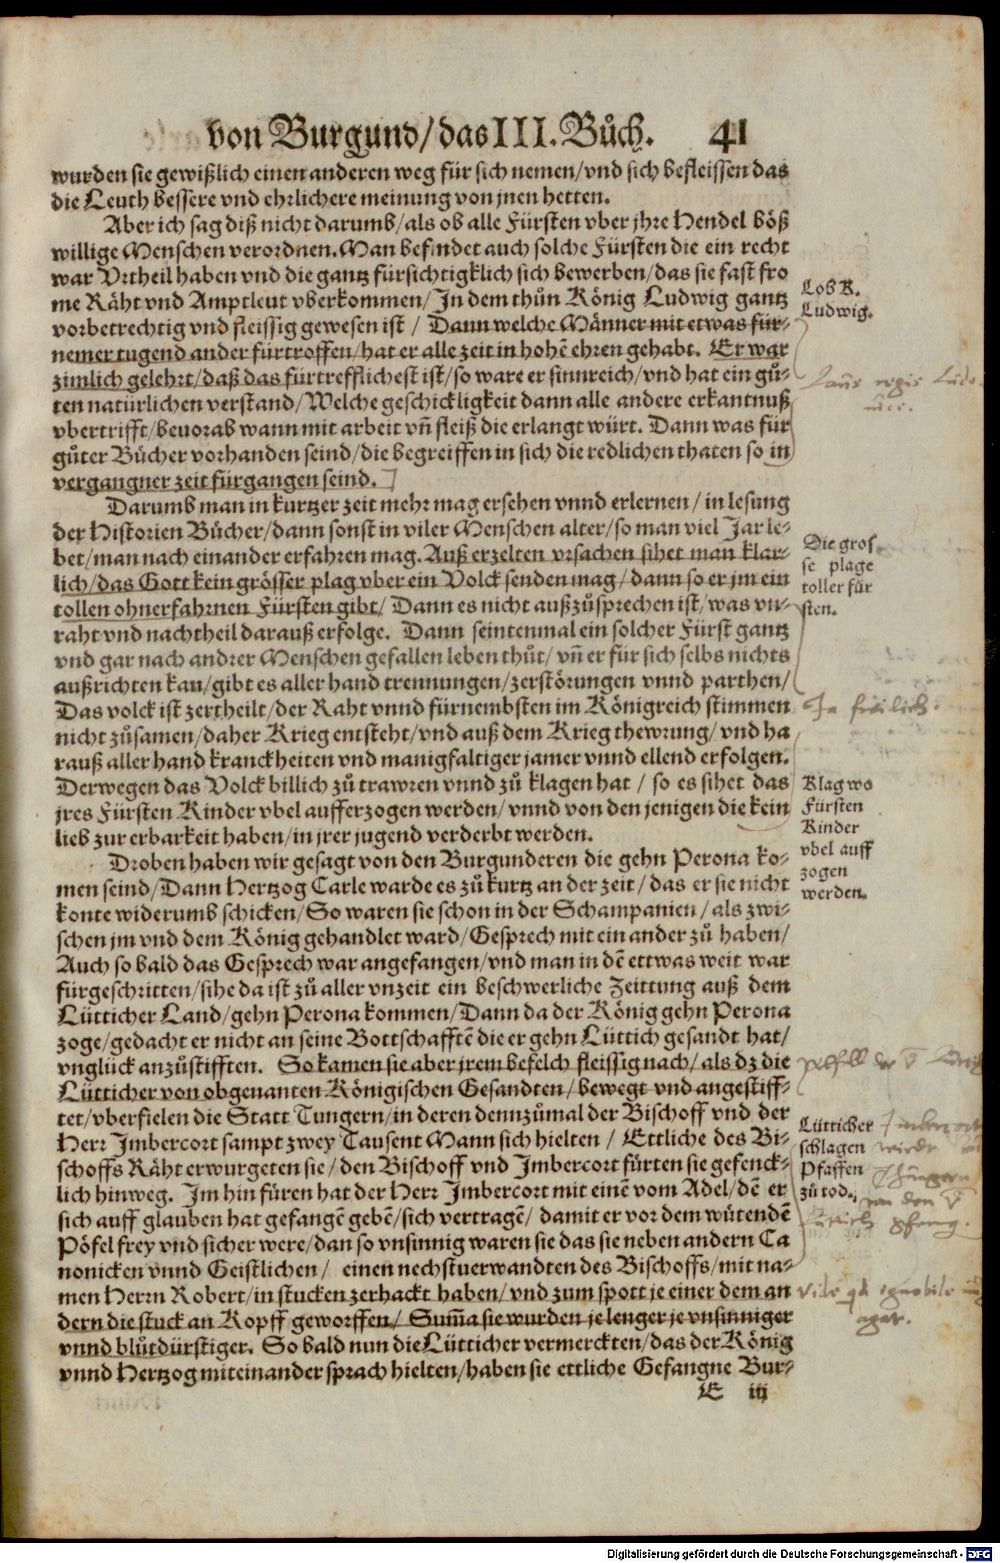 von Burgund/das III. Bůch. 41
wurden sie gewißlich einen anderen weg für sich nemen/vnd sich befleissen das
die Leuth bessere vnd ehrlichere meinung von jnen hetten.
Aber ich sag diß nicht darumb/als ob alle Fürsten vber jhre Hendel böß
willige Menschen verordnen. Man befindet auch solche Fürsten die ein recht
war Vrtheil haben vnd die gantz fürsichtigklich sich bewerben/das sie fast fro
me Räht vnd Amptleut vberkommen/In dem thůn König Ludwig gantz
vorbetrechtig vnd fleissig gewesen ist / Dann welche Männer mit etwas für-
nemer tugend ander fürtroffen/hat er alle zeit in hohē ehren gehabt. Er war
zimlich gelehrt/daß das fürtrefflichest ist/so ware er sinnreich/vnd hat ein gů-
ten natürlichen verstand/Welche geschickligkeit dann alle andere erkantnuß
vbertrifft/beuorab wann mit arbeit vñ fleiß die erlangt würt. Dann was für
gůter Bůcher vorhanden seind/die begreiffen in sich die redlichen thaten so in
vergangner zeit fürgangen seind.
Darumb man in kurtzer zeit mehr mag ersehen vnnd erlernen / in lesung
der Historien Bůcher/dann sonst in viler Menschen alter/so man viel Jar le-
bet/man nach einander erfahren mag. Auß erzelten vrsachen sihet man klar-
lich/das Gott kein grösser plag vber ein Volck senden mag/dann so er jm ein
tollen ohnerfahrnen Fürsten gibt/ Dann es nicht außzůsprechen ist/was vn-
raht vnd nachtheil darauß erfolge. Dann seintenmal ein solcher Fürst gantz
vnd gar nach andrer Menschen gefallen leben thůt/ vñ er für sich selbs nichts
außrichten kan/gibt es aller hand trennungen/zerstörungen vnnd parthen/
Das volck ist zertheilt/der Raht vnnd fürnembsten im Königreich stimmen
nicht zůsamen/daher Krieg entsteht/vnd auß dem Krieg thewrung/vnd ha
rauß aller hand kranckheiten vnd manigfaltiger jamer vnnd ellend erfolgen.
Derwegen das Volck billich zů trawren vnnd zů klagen hat / so es sihet das
jres Fürsten Kinder vbel aufferzogen werden/vnnd von den jenigen die kein
lieb zur erbarkeit haben/in jrer jugend verderbt werden.
Droben haben wir gesagt von den Burgunderen die gehn Perona ko-
men seind/Dann Hertzog Carle warde es zů kurtz an der zeit/das er sie nicht
konte widerumb schicken/So waren sie schon in der Schampanien/als zwi-
schen jm vnd dem König gehandlet ward/Gesprech mit ein ander zů haben/
Auch so bald das Gesprech war angefangen/vnd man in dē ettwas weit war
fürgeschritten/sihe da ist zů aller vnzeit ein beschwerliche Zeittung auß dem
Lütticher Land/gehn Perona kommen/Dann da der König gehn Perona
zoge/gedacht er nicht an seine Bottschafftē die er gehn Lüttich gesandt hat/
vnglück anzůstifften. So kamen sie aber jrem befelch fleissig nach/als dz die
Lütticher von obgenanten Königischen Gesandten/bewegt vnd angestiff-
tet/vberfielen die Statt Tungern/in deren dennzůmal der Bischoff vnd der
Herr Imbercort sampt zwey Tausent Mann sich hielten / Ettliche des Bi-
schoffs Räht erwurgeten sie/den Bischoff vnd Imbercort fürten sie gefenck-
lich hinweg. Im hin füren hat der Herr Imbercort mit einē vom Adel/dē er
sich auff glauben hat gefangē gebē/sich vertragē/ damit er vor dem wütendē
Pöfel frey vnd sicher were/dan so vnsinnig waren sie das sie neben andern Ca
nonicken vnnd Geistlichen/ einen nechstuerwandten des Bischoffs/mit na-
men Herrn Robert/in stucken zerhackt haben/vnd zum spott je einer dem an
dern die stuck an Kopff geworffen/ Sum̄a sie wurden je lenger je vnsinniger
vnnd blůtdürstiger. So bald nun die Lütticher vermerckten/das der König
vnnd Hertzog miteinander sprach hielten/haben sie ettliche Gefangne Bur-
E iij
Lob K.
Ludwig.
Die gros
se plage
toller für
sten.
Ja freilich.
Klag wo
Fürsten
Kinder
vbel auff
zogen
werden.
Lütticher
schlagen
Pfaffen
zů tod.
Digitalisierung gefördert durch die Deutsche Forschungsgemeinschaft - DFG